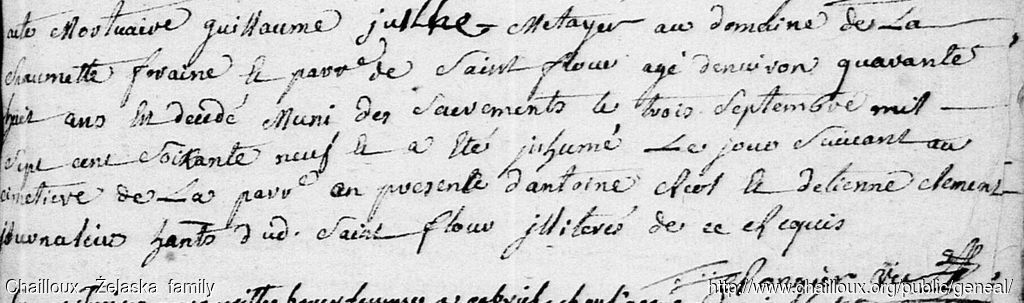 acte Mortuaire guillaume julhe Metayer au domaine de La
chaumette foraine et parr.e de Saint flour agé denviron quarante
huit ans Est decedé Muni des Sacrements le trois Septembre mil
Sept cent Soixante neuf Et a Eté jnhumé Le jour Suivant au
cimetiere de La parr.e en presence d'antoine Et detienne clement
journaliers hants dud. Saint flour jlliterés de ce Enquis
Chailloux _ Żelaska family
http://www.chailloux.org/public/geneal/